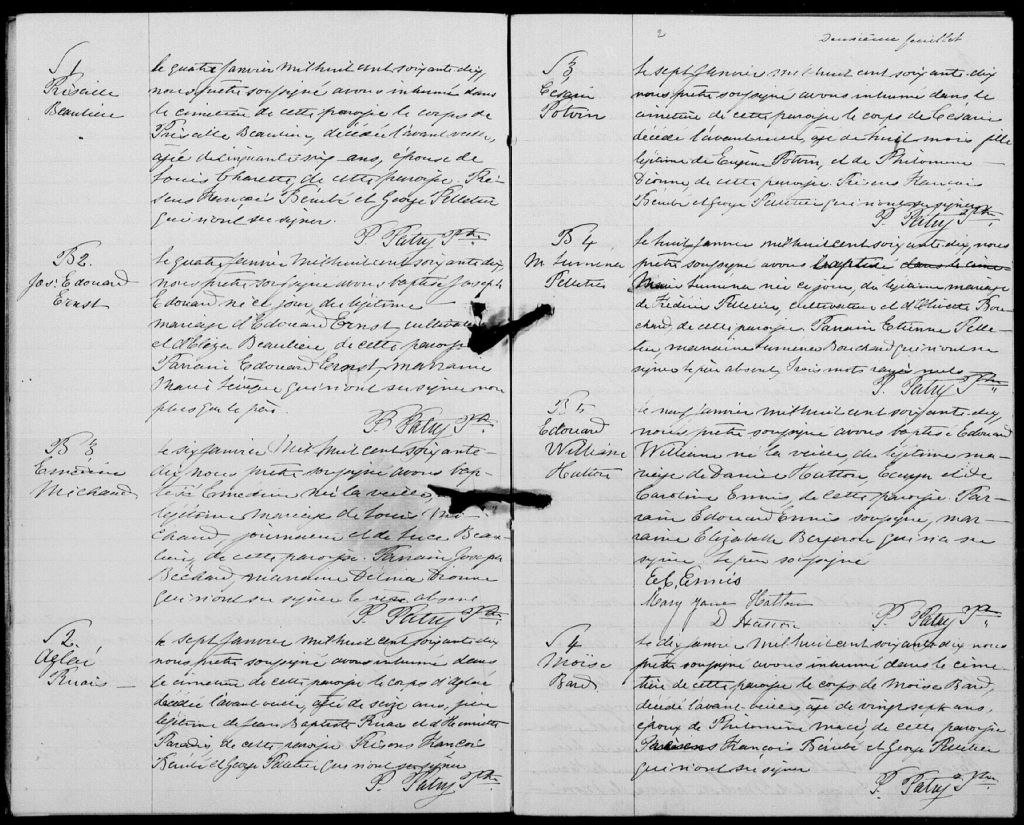 S 1
Priscille
Beaulieu
le quatre Janvier mil huit cent soixante dix,
nous prêtre soussigné avons inhumé dans
le cimetière de cette paroisse le corps de
Priscille Beaulieu, décédée l'avant veille,
âgée de cinquante six ans, épouse de
Louis Charette de cette paroisse. Pré-
sens François Bérubé et George Pelletier
qui n'ont su signer.
P. Patry Ptre
B 2.
Jos: Edouard
Ernst
le quatre Janvier mil huit cent soixante dix,
nous prêtre soussigné avons baptisé Joseph
Edouard né ce jour du légitime
mariage d'Edouard Ernst, cultivateur
et d'Elèze Beaulieu de cette paroisse
Parrain Edouard Ernst, marraine
Marie qui n'ont su signer non
plus que le père.
P. Patry Ptre
B 3
Emérine
Michaud
le six Janvier mil huit cent soixante-
dix nous prêtre soussigné avons bap-
tisé né la veille,
légitime mariage de Louis Mi-
chaud, journalier et de Luce Beau-
lieu, de cette paroisse. Parrain Joseph
Béchard, marraine Delvina Dionne
qui n'ont su signer le père absent.
P. Patry Ptre
S 2.
Aglaé
Ruais
le sept Janvier mil huit cent soixante dix
nous prêtre soussigné avons inhumé dans
le cimetière de cette paroisse le corps d'Aglaé
décédée l'avant veille, âgée de seize ans, fille
légitime de Jean Baptiste Ruais et d'Henriette
Paradis de cette paroisse Présens François
Bérubé et George Pelletier qui n'ont su signer
P. Patry Ptre
2
Deuxième feuillet
S 3
Césarie
Potvin
le sept Janvier mil huit cent soixante dix
nous prêtre soussigné avons inhumé dans le
cimetière de cette paroisse le corps de Césarie
décédé l'avant veille, âgé de huit mois fille
légitime de Eugène Potvin, et de Philomène
Dionne de cette paroisse. Présens François
Bérubé et George Pelletier qui n'ont su signer
P. Patry Ptre
B 4
M. Lumena
Pelletier
le huit Janvier mil huit cent soixante dix, nous
prêtre soussigné avons baptisé dans le cime
Marie Lumena née ce jour, du légitime mariage
de Frédéric Pelletier, cultivateur et d'Olivette Bou-
chard de cette paroisse Parrain Etienne Pelle-
tier, marraine Lumena Bouchard qui n'ont su
signer le père absent, trois mots rayés nuls
P. Patry Ptre
B 5
Edouard
William
Hatton
le neuf Janvier mil huit cent soixante dix,
nous prêtre soussigné avons baptisé Edouard
William né la veille du légitime ma-
riage de Daniel Hatton, Ecuyer et de
Caroline Ennis, de cette paroisse. Par-
rain Edouard Ennis soussigné, mar-
raine Elizabette Bergeron qui n'a su
signer le père soussigné
E. C. Ennis
Mary Jane Hatton
D Hatton
P. Patry Ptre
S 4
Moïse
Bard
le dix Janvier mil huit cent soixante dix nous
prêtre soussigné avons inhumé dans le cime-
tière de cette paroisse le corps de Moïse Bard,
décédé l'avant veille, âgé de vingt sept ans,
époux de Philomène de cette paroisse
Présens François Bérubé et George Pelletier
qui n'ont su signer
P. Patry Ptre